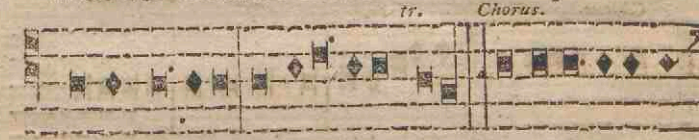 tr. Chorus.